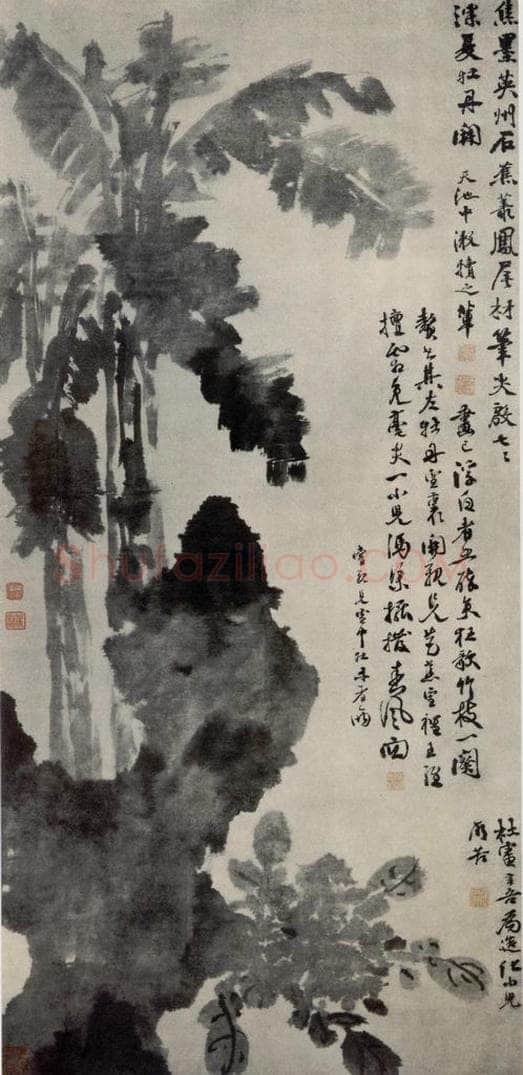 焦墨英州石蕉叢鳳尾材筆尖殷七七
深夏牡丹開 天池中漱犢之輩
畫已浮白者五醉矣狂歌竹枝一闋
贅書其左牡丹雪裏開親見芭蕉雪裡王維
擅霜兔毫尖一小兒馮渠擺撥春風面
嘗親見雪中牡丹者兩
杜審言吾為造化小兒
所苦
Shufaziliao.COM